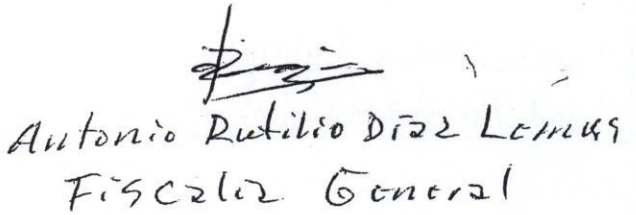 Antonio Rutilio Díaz Lemus
Fiscalia General